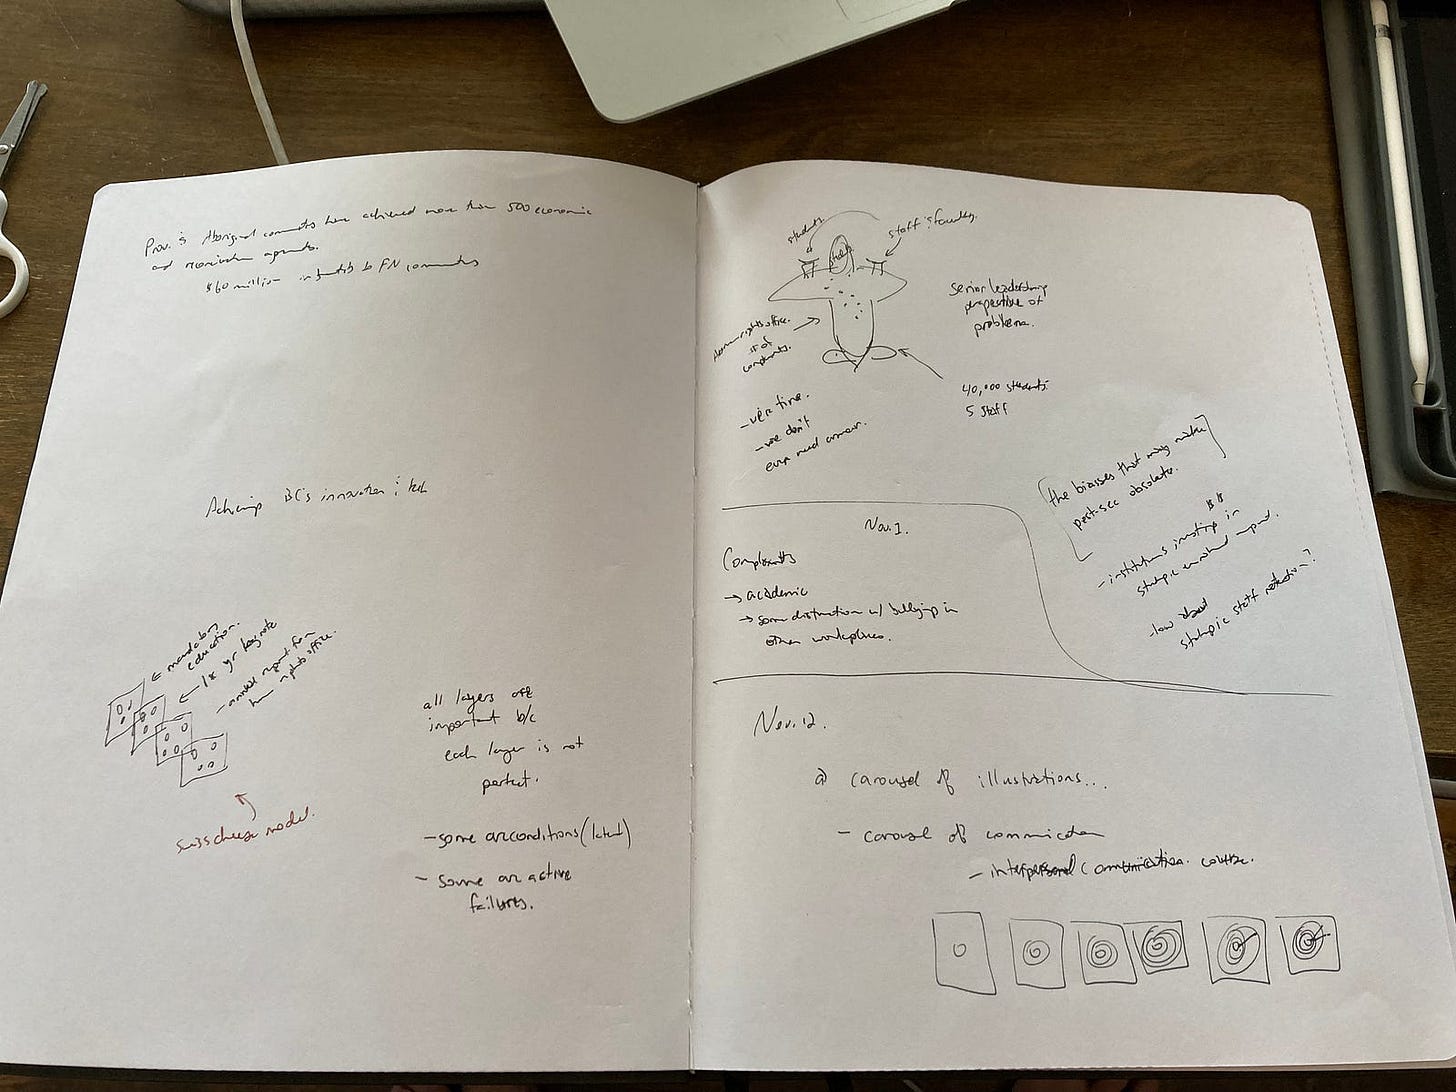 Prov. & Aboriginal have achieved more than 500 economic
and reconciliation agreements.
$60 million in to FN communities
BC's innovation & tech
← mandatory
education.
← 1st yr keynote
- annual report from
human rights office.
Swiss cheese model.
all layers are
important b/c
each layer is not
perfect.
- some are conditions (latent)
- some are active
failures.
students
staff & faculty.
human rights office.
# of
complaints.
senior leadership
perspective of
problems.
40,000 students.
5 staff
- we're fine.
- we don't
even need armour.
the biases that may make
post-sec obsolete.
$$
- institutions investing in
strategic enrolment mgmt.
- low
strategic staff retention?
Nov. 1.
Complaints
→ academic
→ some distinction w/ bullying in
other workplaces.
Nov. 12.
a) carousel of illustrations...
- carousel of communication
- interpersonal communication course.